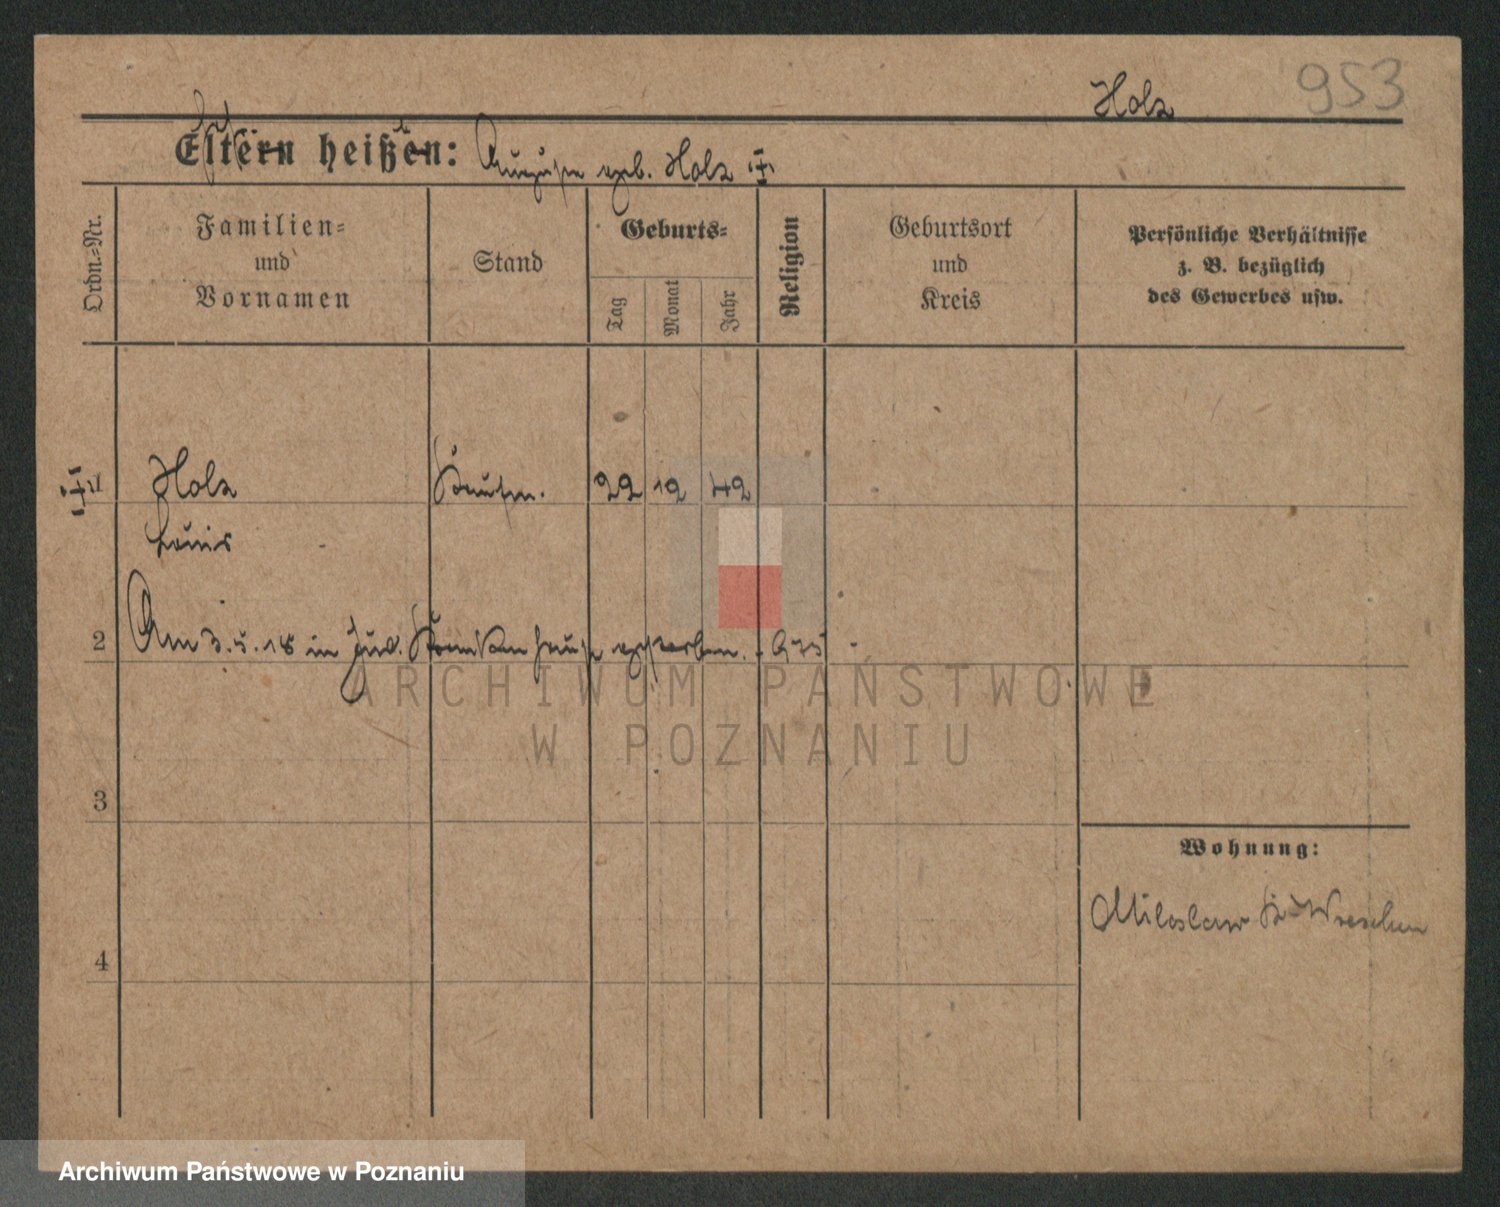 953
Holz
Eltern heißen: Auguste geb. Holz
Ordn.-Nr.
Familien-
und
Vornamen
Stand
Geburts-
Tag
Monat
Jahr
Religion
Geburtsort
und
Kreis
Persönliche Verhältnisse
z. B. bezüglich
des Gewerbes usw.
1 Holz Kaufm. 22 12 42
Louis
2 Am 3.5.18 in jüd. Krankenhause gestorben. - 975 -
3
4
Wohnung:
Miloslaw Kr. Wreschen
ARCHIWUM PAŃSTWOWE
W POZNANIU
Archiwum Państwowe w Poznaniu